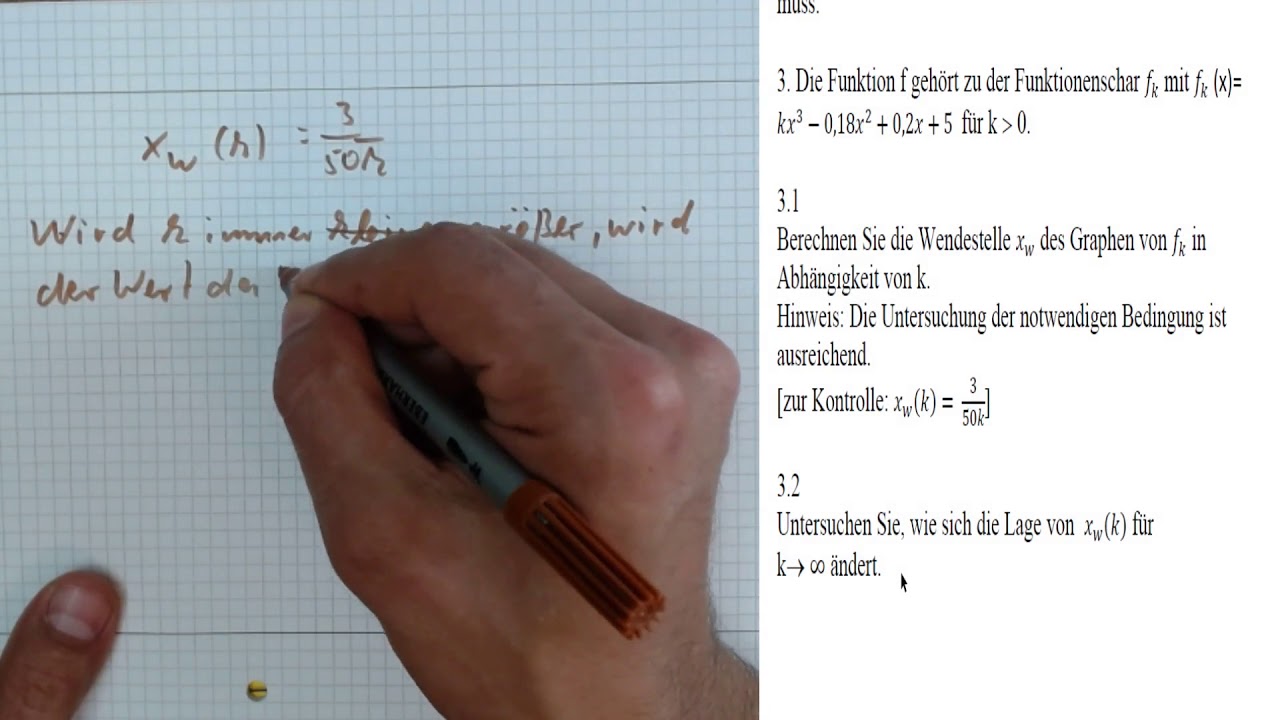 x_w (k) = 3/50k
Wird k immer größer, wird
der Wert der
EBERHARD
muss.
3. Die Funktion f gehört zu der Funktionenschar f_k mit f_k (x)=
kx³ − 0,18x² + 0,2x + 5 für k > 0.
3.1
Berechnen Sie die Wendestelle x_w des Graphen von f_k in
Abhängigkeit von k.
Hinweis: Die Untersuchung der notwendigen Bedingung ist
ausreichend.
[zur Kontrolle: x_w(k) = 3/50k]
3.2
Untersuchen Sie, wie sich die Lage von x_w(k) für
k→ ∞ ändert.